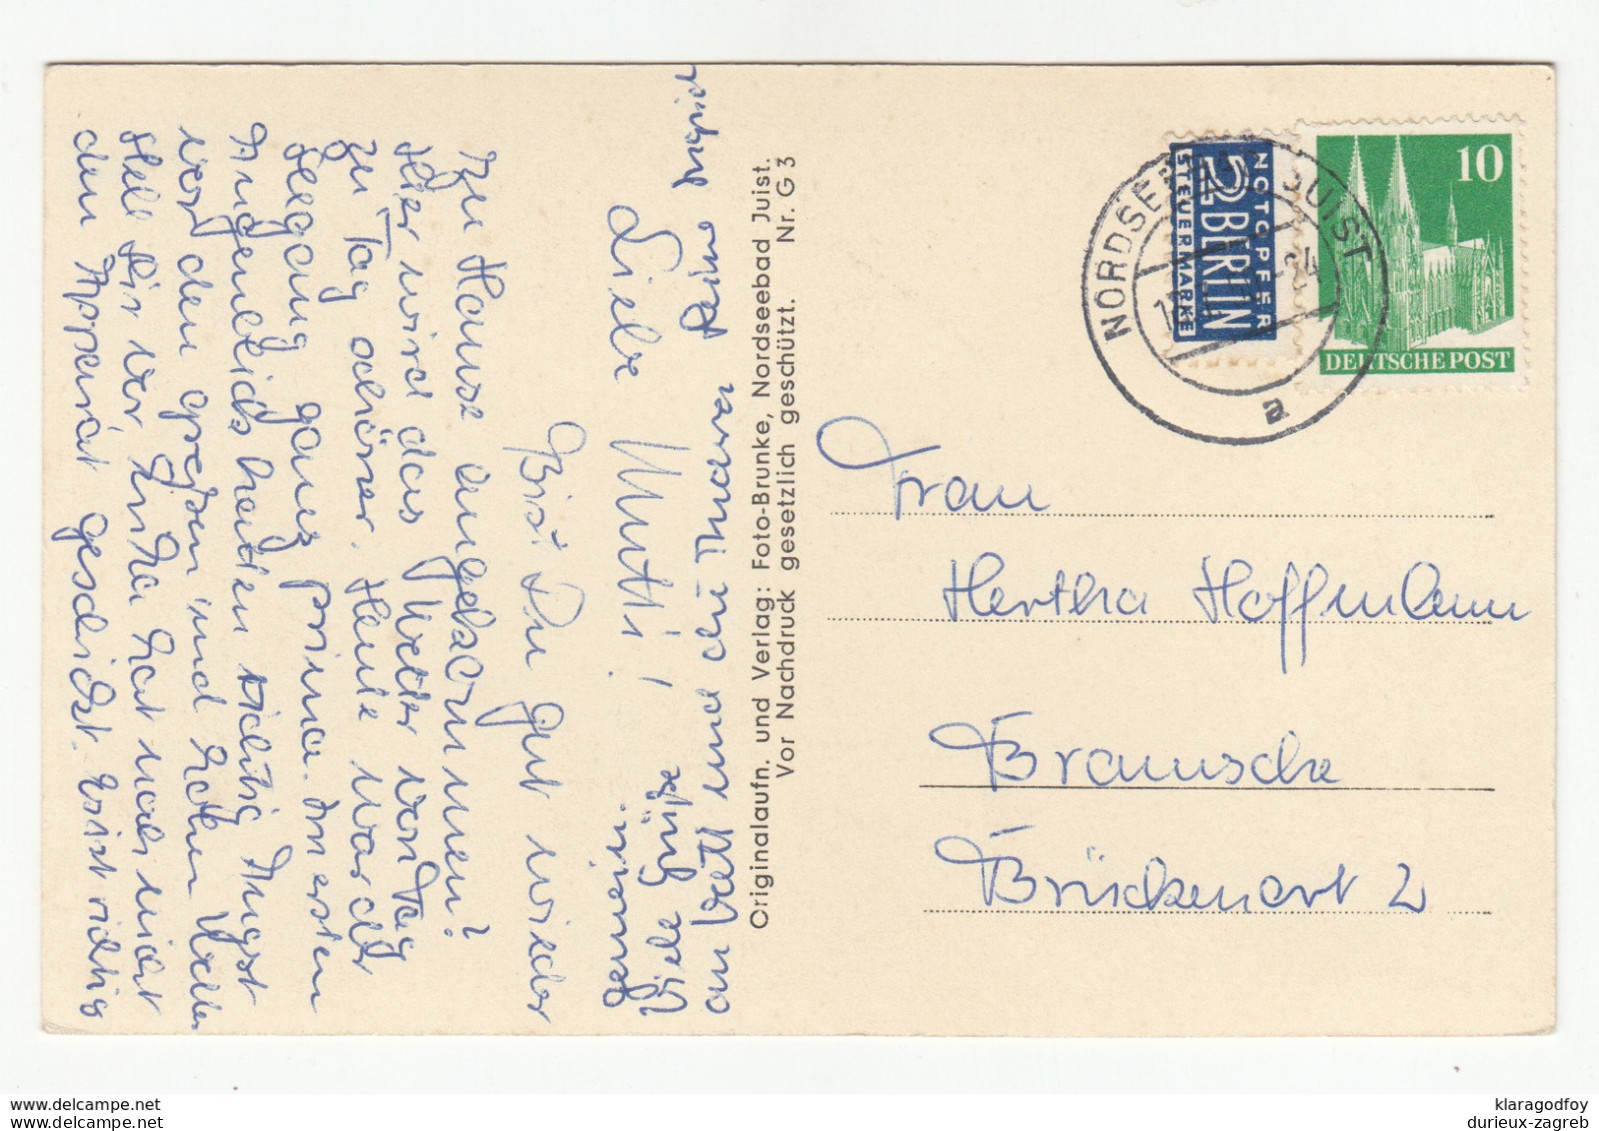 Liebe Mutti!
Bist Du gut wieder
zu Hause angekommen?
Hier wird das Wetter von Tag
zu Tag schöner. Heute war der
Seegang ganz prima. Am ersten
Augenblick hatten richtig Angst
vor den großen und hohen Wellen
Stell Dir vor, hat noch nicht
den Apparat geschickt. Es ist richtig
Viele Grüße
an Vati und
Deine
Originalaufn. und Verlag: Foto-Brunke, Nordseebad Juist.
Vor Nachdruck gesetzlich geschützt. Nr. G 3
NOTOPFER
2 BERLIN
STEUERMARKE
10
DEUTSCHE POST
NORDSEEBAD JUIST
a
Frau
Hertha Hoffmann
Bramsche
Brückenort 2
klaragodfoy
durieux-zagreb
www.delcampe.net